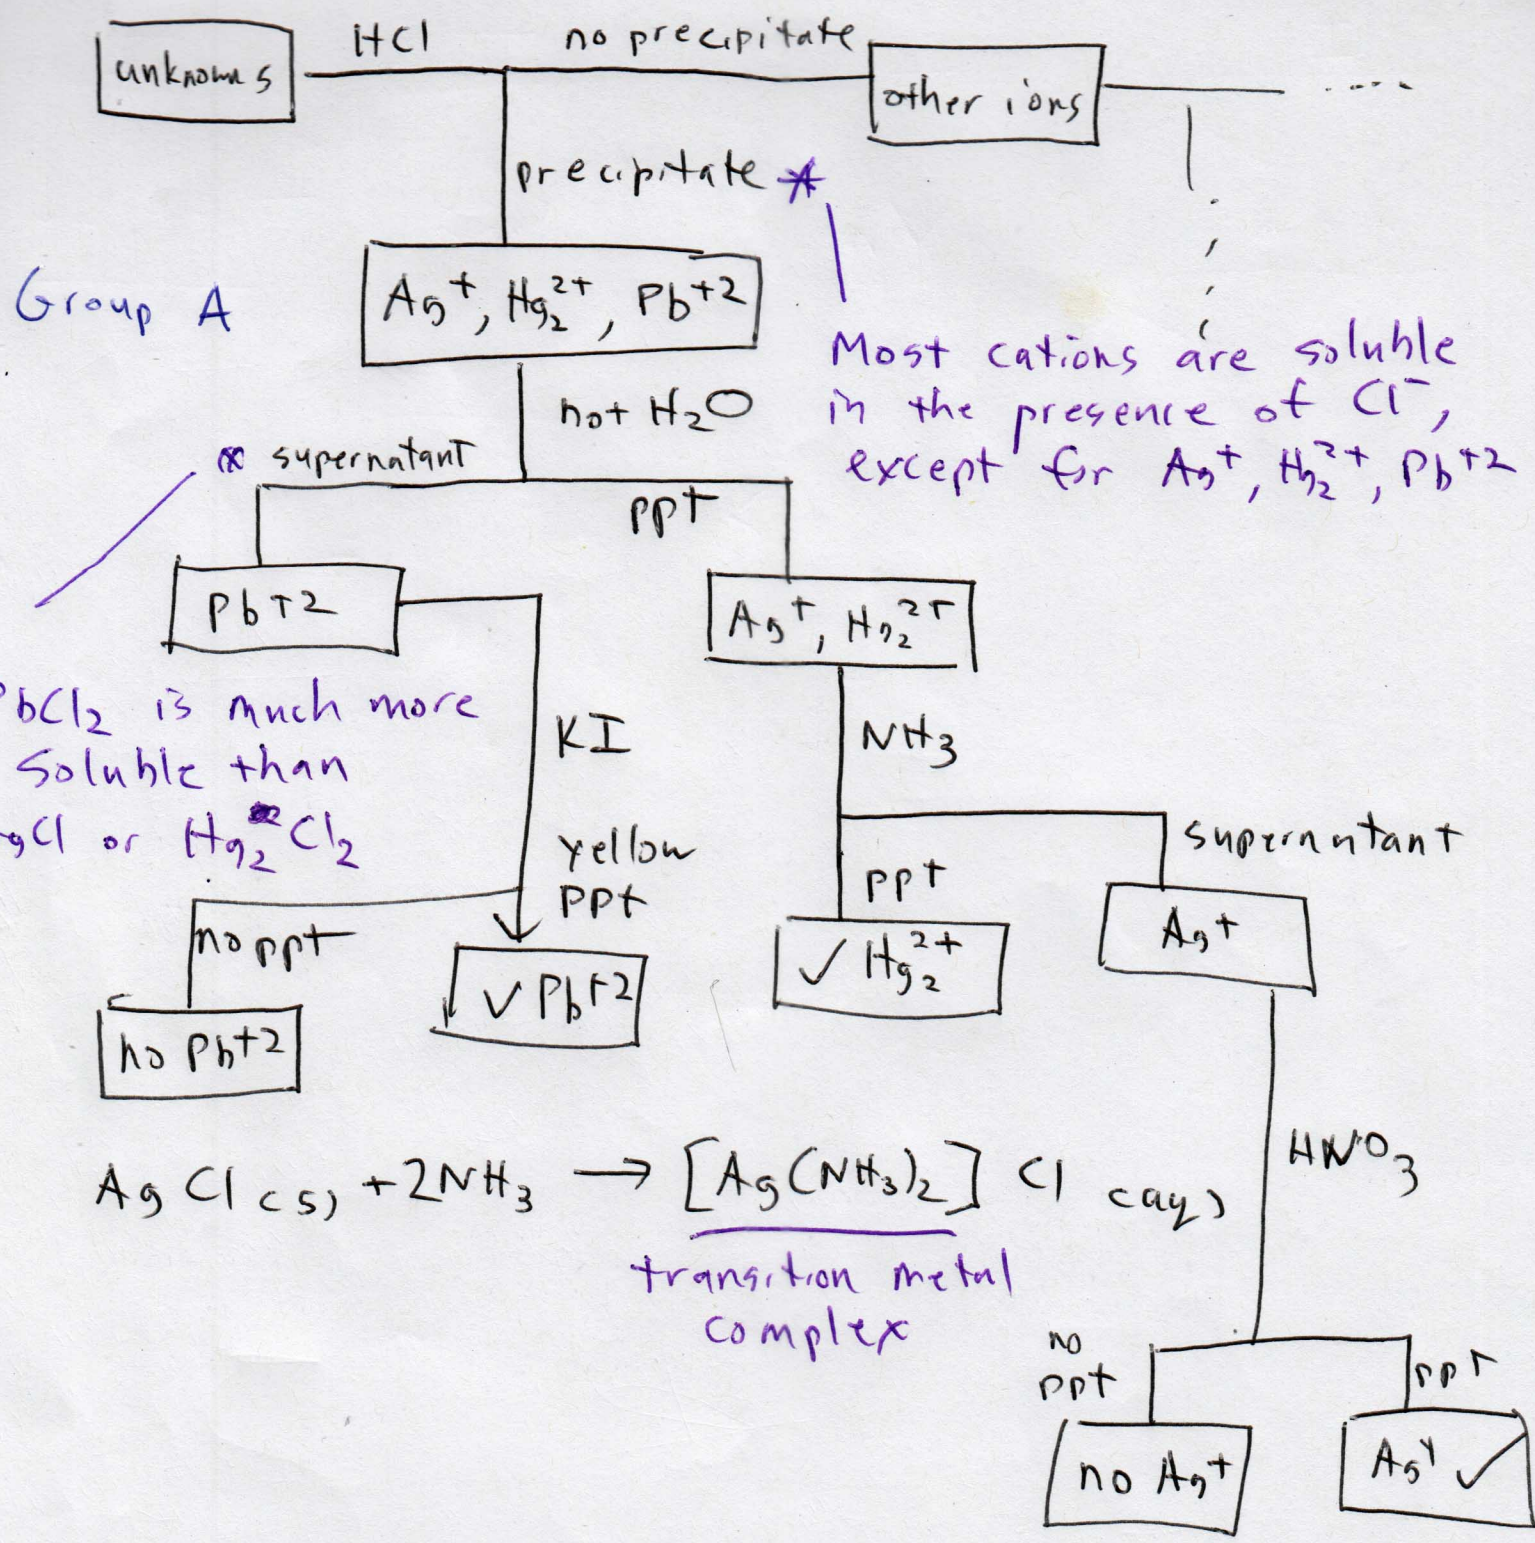 unknowns
HCl
no precipitate
other ions
precipitate *
Group A
Ag⁺, Hg₂²⁺, Pb⁺²
Most cations are soluble
in the presence of Cl⁻,
except for Ag⁺, Hg₂²⁺, Pb⁺²
hot H₂O
* supernatant
ppt
Pb⁺²
Ag⁺, Hg₂²⁺
PbCl₂ is much more
soluble than
AgCl or Hg₂Cl₂
KI
NH₃
yellow
ppt
ppt
supernatant
no ppt
✓ Pb⁺²
✓ Hg₂²⁺
Ag⁺
no Pb⁺²
AgCl(s) + 2NH₃ → [Ag(NH₃)₂] Cl (aq)
transition metal
complex
HNO₃
no
ppt
ppt
no Ag⁺
Ag⁺ ✓